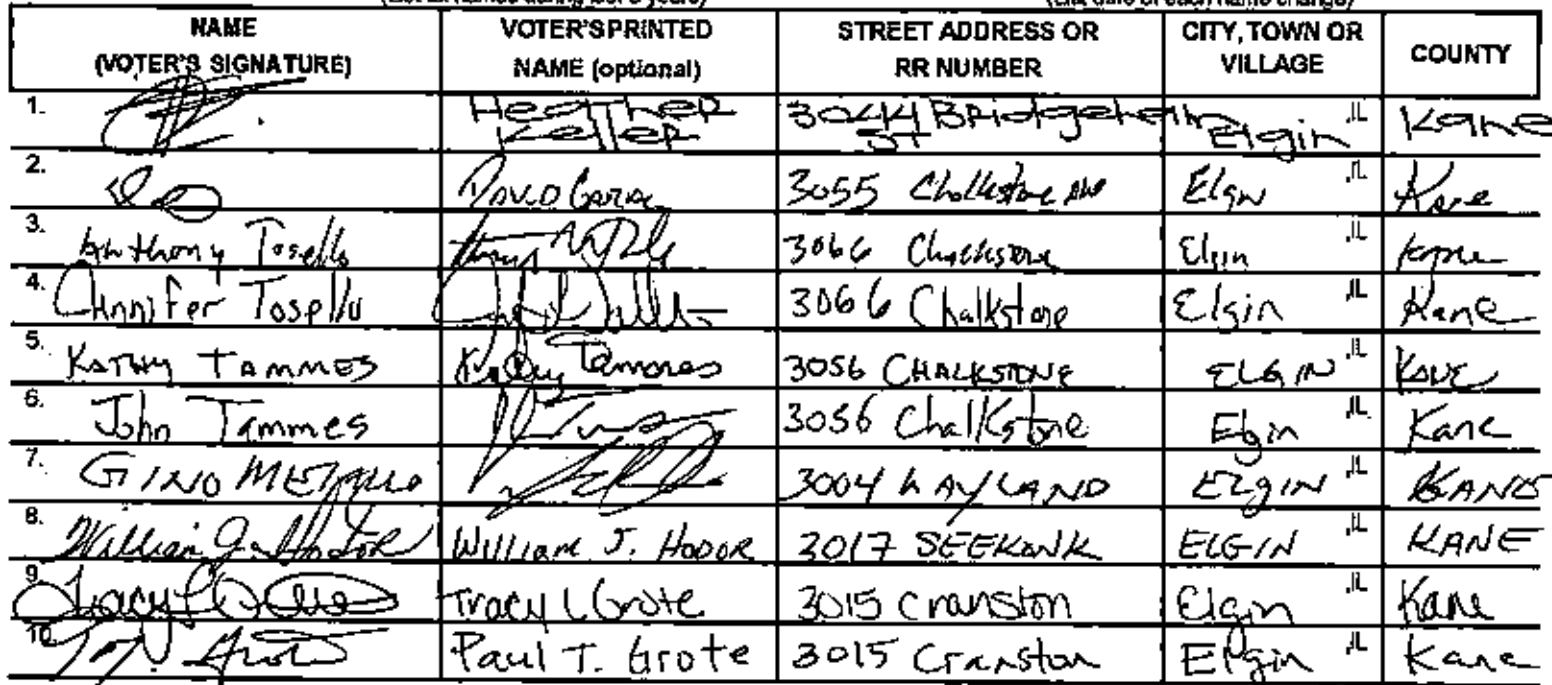 NAME (VOTER'S SIGNATURE) VOTER'S PRINTED NAME (optional) STREET ADDRESS OR RR NUMBER CITY, TOWN OR VILLAGE COUNTY
1. Heather Keller 3044 Bridgeham ST Elgin ,IL Kane
2. 3055 Chalkstone Ave Elgin ,IL Kane
3. Anthony Tosello 3066 Elgin ,IL Kane
4. Jennifer Tosello 3066 Chalkstone Elgin ,IL Kane
5. KATHY TAMMES Kathy Tammes 3056 CHALKSTONE ELGIN ,IL Kane
6. John Tammes 3056 Chalkstone Elgin ,IL Kane
7. GINO 3004 ELGIN ,IL KANE
8. William J. Hodor WILLIAM J. HODOR 3017 SEEKONK ELGIN ,IL KANE
9. Tracy L Grote Tracy L Grote 3015 Cranston Elgin ,IL Kane
10. Paul T. Grote 3015 Cranston Elgin ,IL Kane